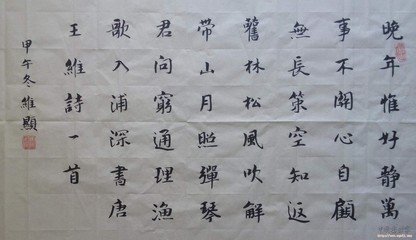 晚年惟好静萬
事不關心自顧
無長策空知返
舊林松風吹解
帶山月照彈琴
君問窮通理漁
歌入浦深書唐
王維詩一首
甲午冬維顯